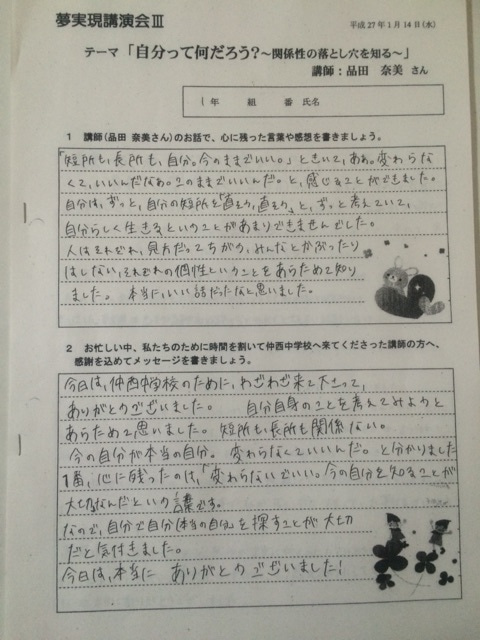 夢実現講演会Ⅲ
平成27年1月14日(水)
テーマ「自分って何だろう?~関係性の落とし穴を知る~」
講師:品田 奈美 さん
1年 組 番 氏名
1 講師(品田 奈美さん)のお話で、心に残った言葉や感想を書きましょう。
「短所も、長所も、自分。今のままでいい。」ときいて、あぁ。変わらな
くて、いいんだなぁ。このままでいいんだ。と、感じることができました。
自分は、ずっと、自分の短所を「直そう、直そう」と、ずっと考えていて、
自分らしく生きるということがあまりできませんでした。
人はそれぞれ、見方だってちがう、みんなとかぶったり
はしない、それぞれの個性ということをあらためて知り
ました。 本当に、いい話だったなと思いました。
2 お忙しい中、私たちのために時間を割いて仲西中学校へ来てくださった講師の方へ、
感謝を込めてメッセージを書きましょう。
今日は、仲西中学校のために、わざわざ来て下さって、
ありがとうございました。 自分自身のことを考えてみようと
あらためて思いました。 短所も長所も関係ない。
今の自分が本当の自分。 変わらなくていいんだ。と分かりました
1番、心に残ったのは、「変わらないでいい。今の自分を知ることが
大切なんだという言葉です。
なので、自分で自分(本当の自分)を探すことが大切
だと気付きました。
今日は、本当に ありがとうございました!